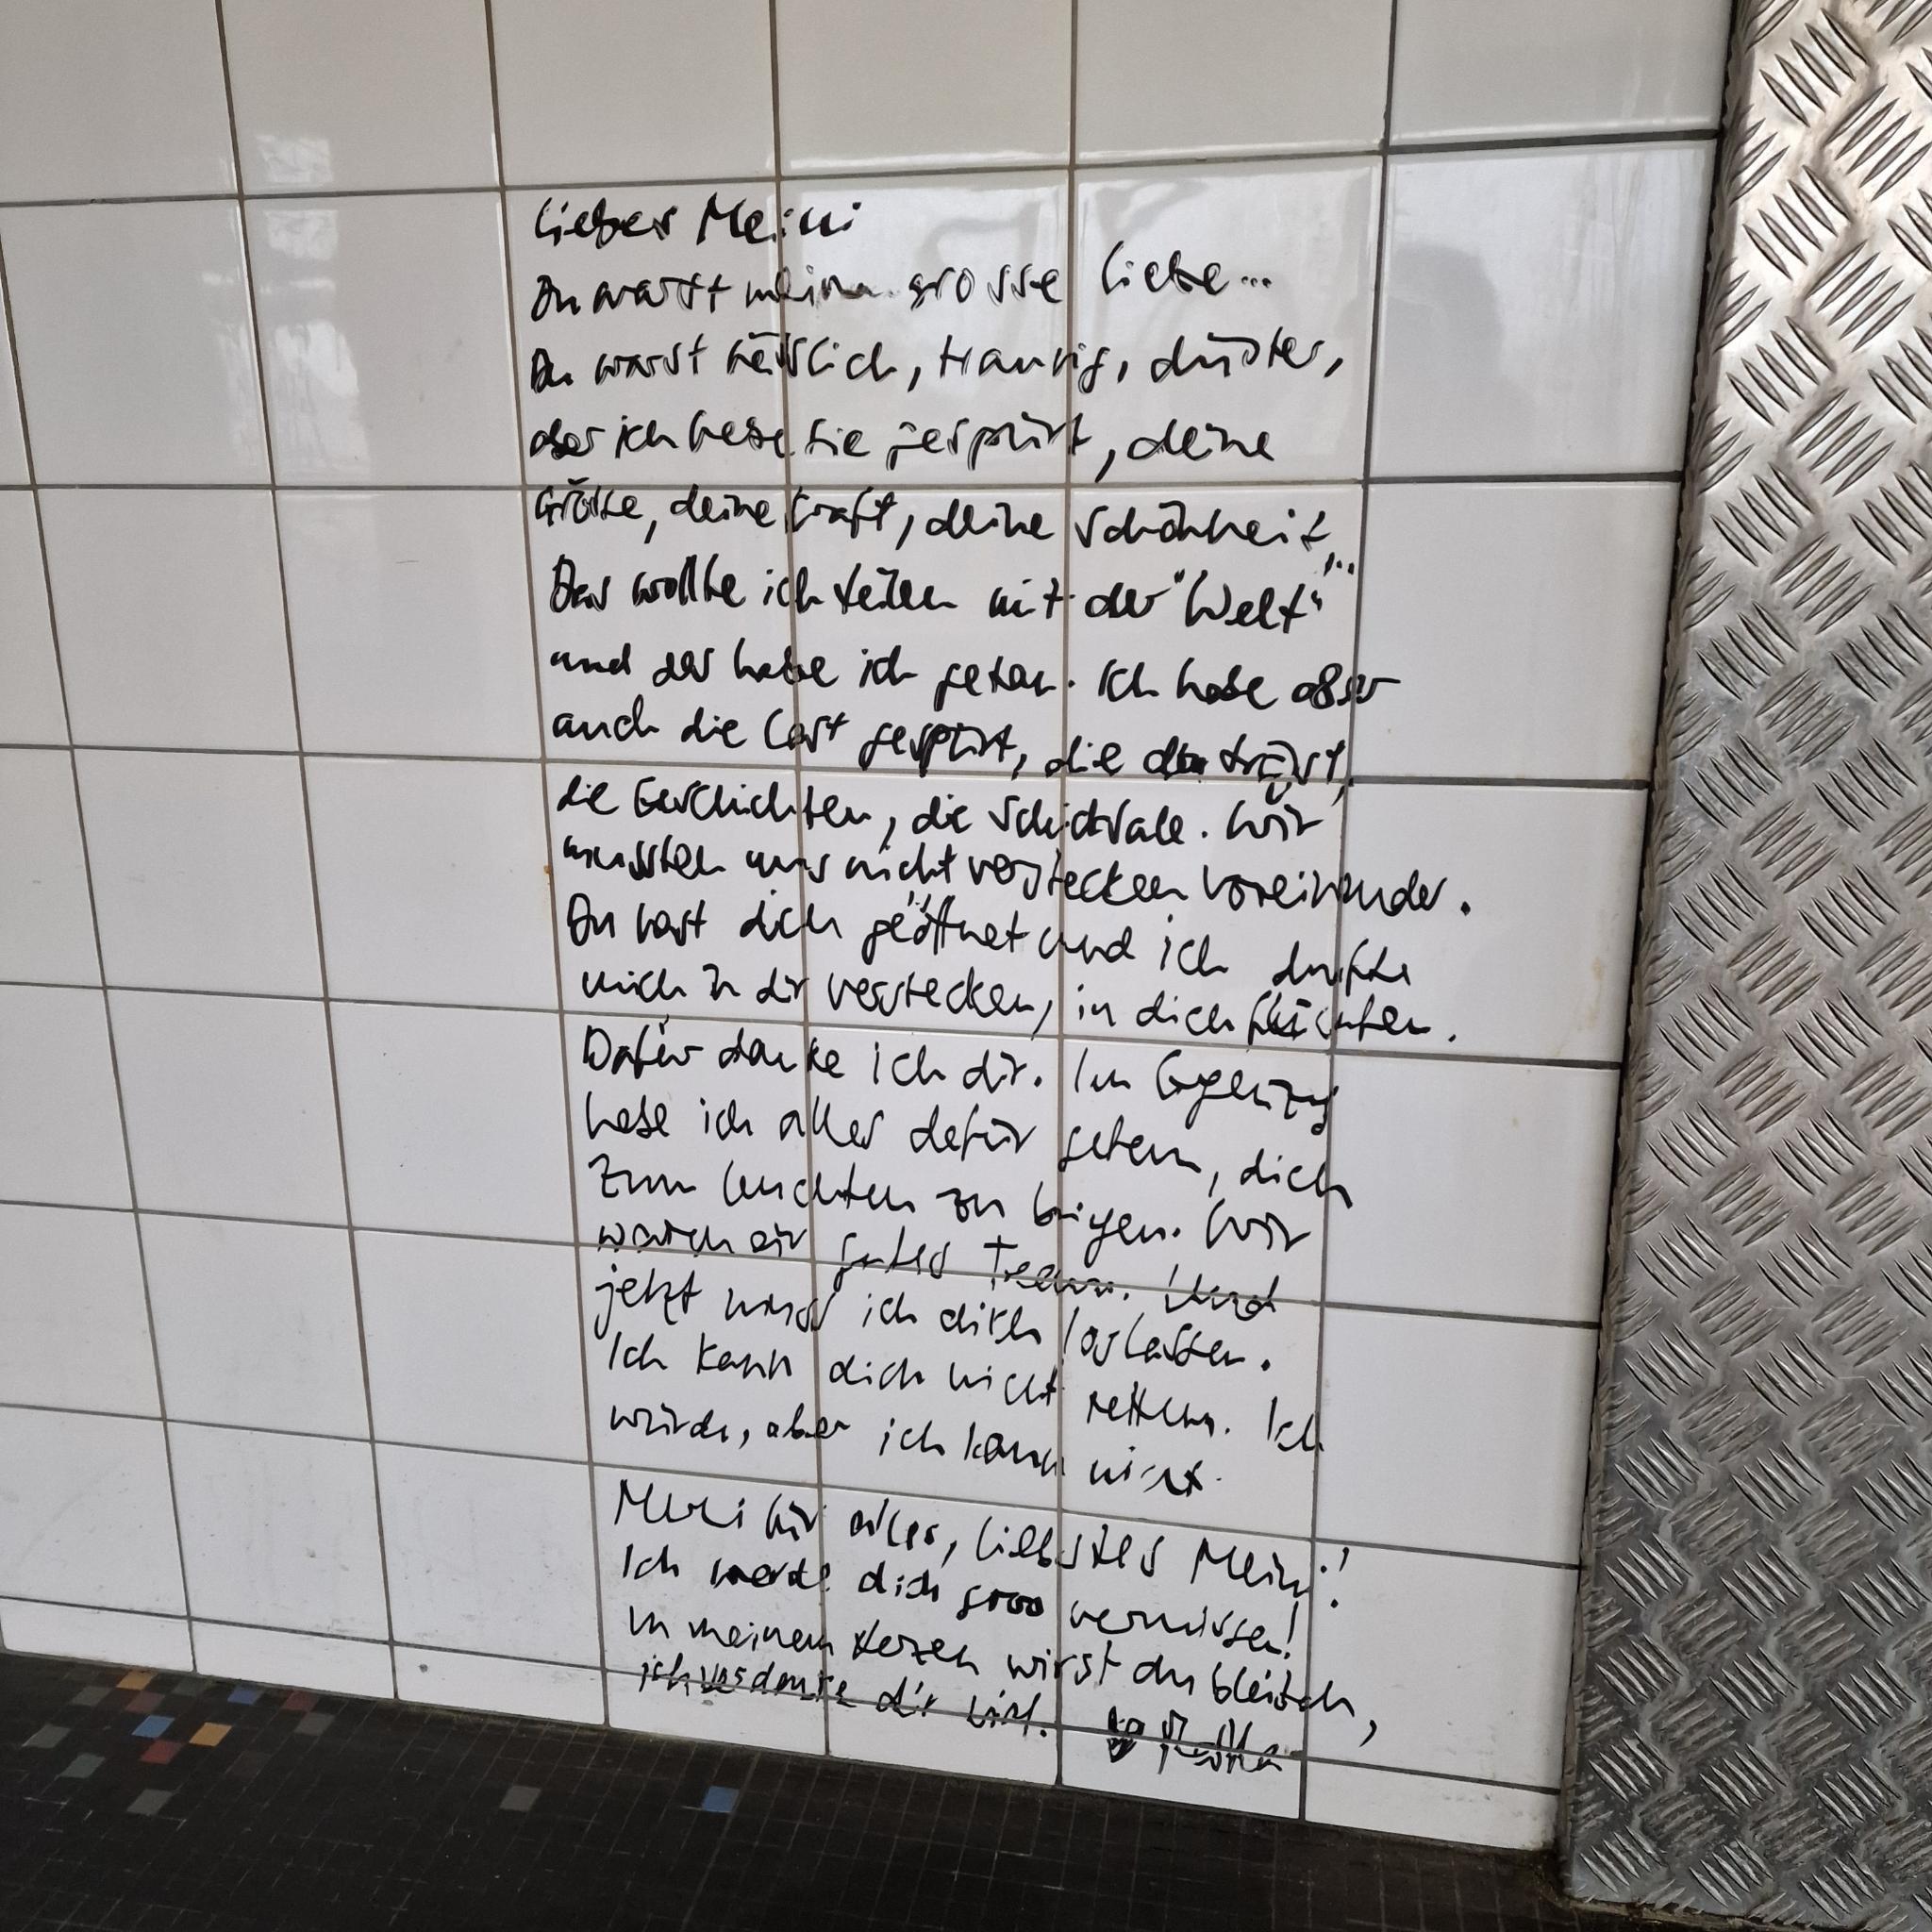 Liebes Meini
Du warst meine grosse Liebe...
Du warst hässlich, traurig, düster,
aber ich habe sie gespürt, deine
Grösse, deine Kraft, deine Schönheit...
Das wollte ich teilen mit der "Welt"
und das habe ich getan. Ich habe aber
auch die Last gespürt, die du trägst,
die Geschichten, die Schicksale. Wir
mussten uns nicht verstecken voreinander.
Du hast dich geöffnet und ich durfte
mich in dir verstecken, in dich flüchten.
Dafür danke ich dir. Im Gegenzug
habe ich alles dafür getan, dich
zum leuchten zu bringen. Wir
waren ein gutes Team. Und
jetzt muss ich dich loslassen.
Ich kann dich nicht retten. Ich
würde, aber ich kann nicht.
Merci für alles, liebstes Meini!
Ich werde dich sooo vermissen!
In meinem Herzen wirst du bleiben,
ich verdanke dir viel.